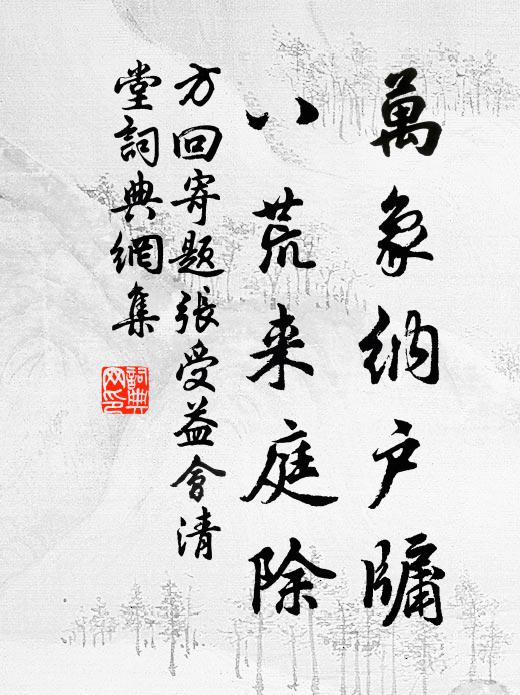 萬象納戶牖
八荒来庭除
方回寄題張受益會清
堂詞典網集
詞典
网印